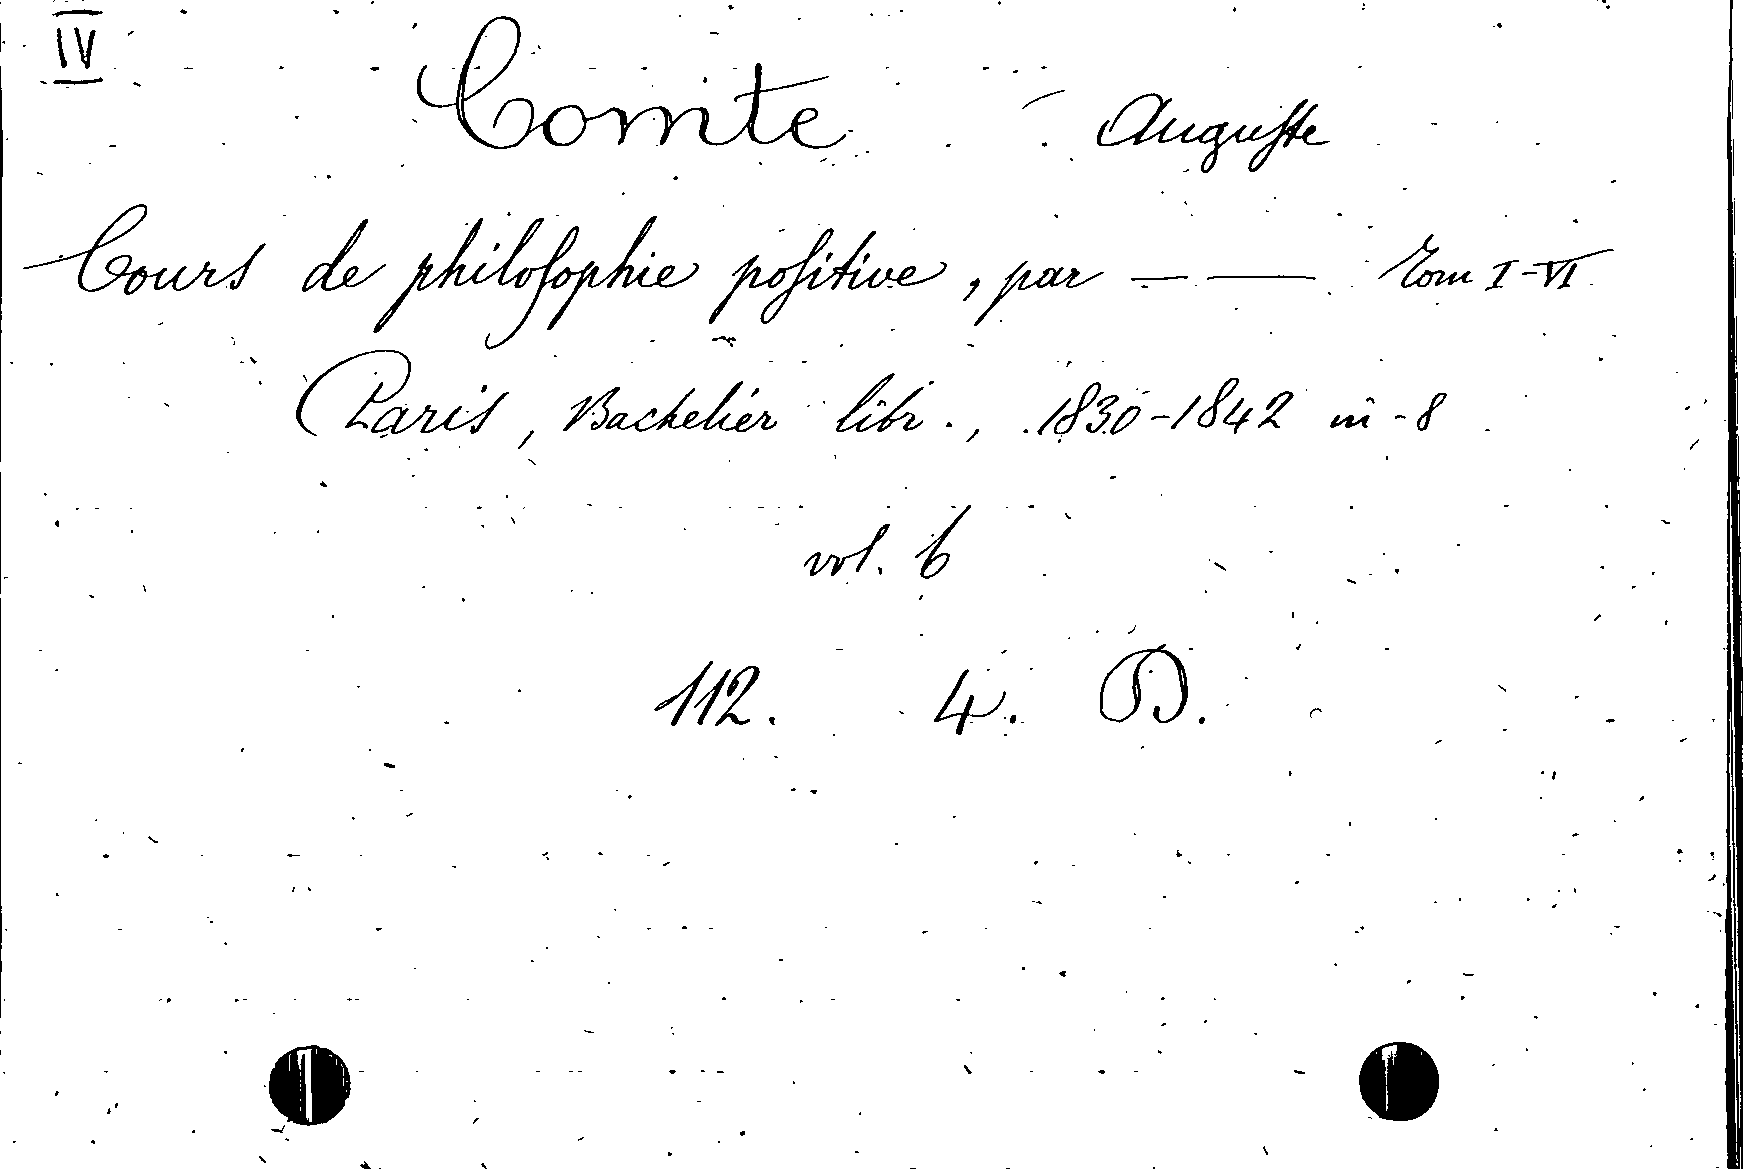 IV
Comte Auguste
Cours de philosophie positive, par — — Tom I-VI
Paris, Bachelier libr., 1830-1842 in-8
vol. 6
112. 4. D.